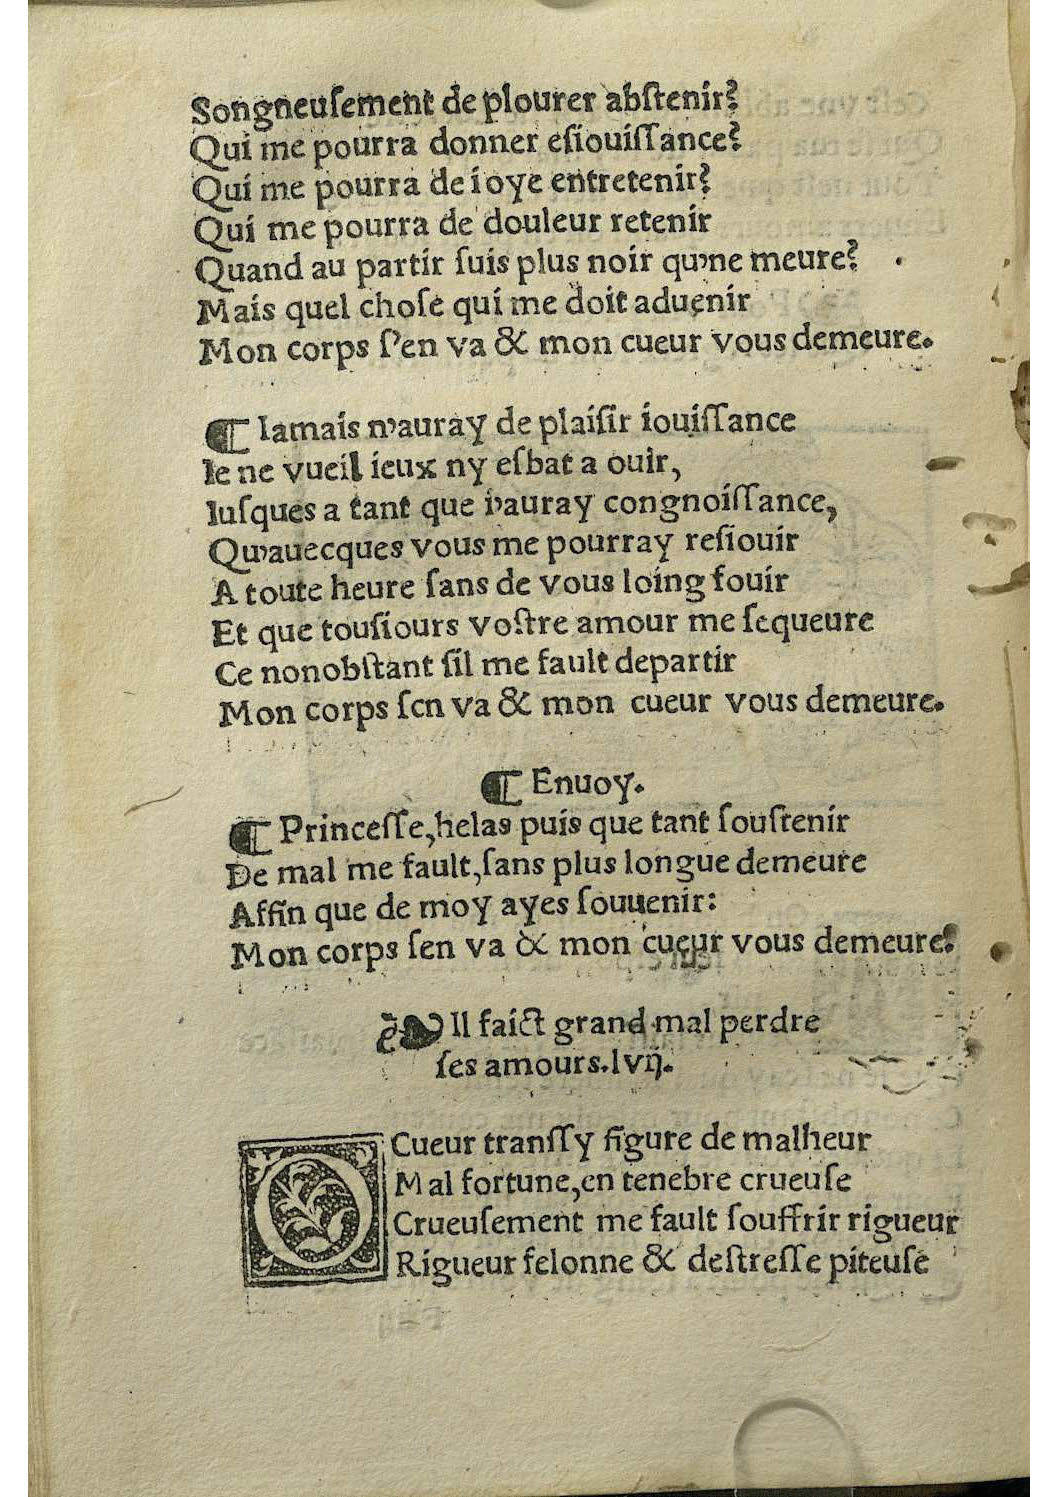 Songneuſement de plourer abſtenir?
Qui me pourra donner eſiouiſſance?
Qui me pourra de ioye entretenir?
Qui me pourra de douleur retenir
Quand au partir ſuis plus noir qu'ne meure?
Mais quel choſe qui me doit aduenir
Mon corps ſ'en va & mon cueur vous demeure.
¶ Iamais n'auray de plaiſir iouiſſance
Ie ne vueil ieux ny eſbat a ouir,
Iuſques a tant que i'auray congnoiſſance,
Qu'auecques vous me pourray reſiouir
A toute heure ſans de vous loing fouir
Et que touſiours voſtre amour me ſequeure
Ce nonobſtant ſil me fault departir
Mon corps ſen va & mon cueur vous demeure.
¶ Enuoy.
¶ Princeſſe, helas puis que tant ſouſtenir
De mal me fault, ſans plus longue demeure
Affin que de moy ayes ſouuenir:
Mon corps ſen va & mon cueur vous demeure.
❧ Il faict grand mal perdre
ſes amours. lvij.
O Cueur tranſſy figure de malheur
Mal fortune, en tenebre crueuſe
Crueuſement me fault ſouffrir rigueur
Rigueur felonne & deſtreſſe piteuſe